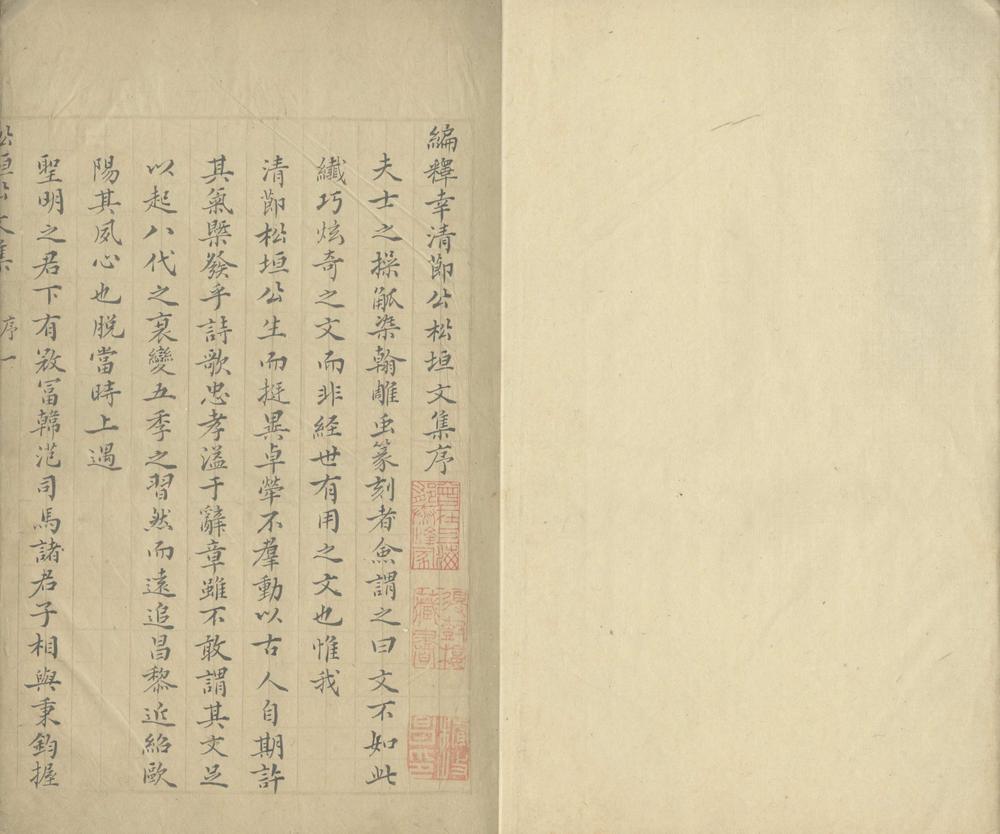 編釋幸清節公松垣文集序
夫士之操觚染翰雕虫篆刻者僉謂之曰文不如此
纖巧炫奇之文而非経世有用之文也惟我
清節松垣公生而挺異卓犖不羣動以古人自期許
其氣槩發乎詩歌忠孝溢于辭章雖不敢謂其文足
以起八代之衰變五季之習然而遠追昌黎近紹歐
陽其夙心也脱當時上遇
聖明之君下有冨韓范司馬諸君子相與秉鈞握
松垣公文集 序一
藏書